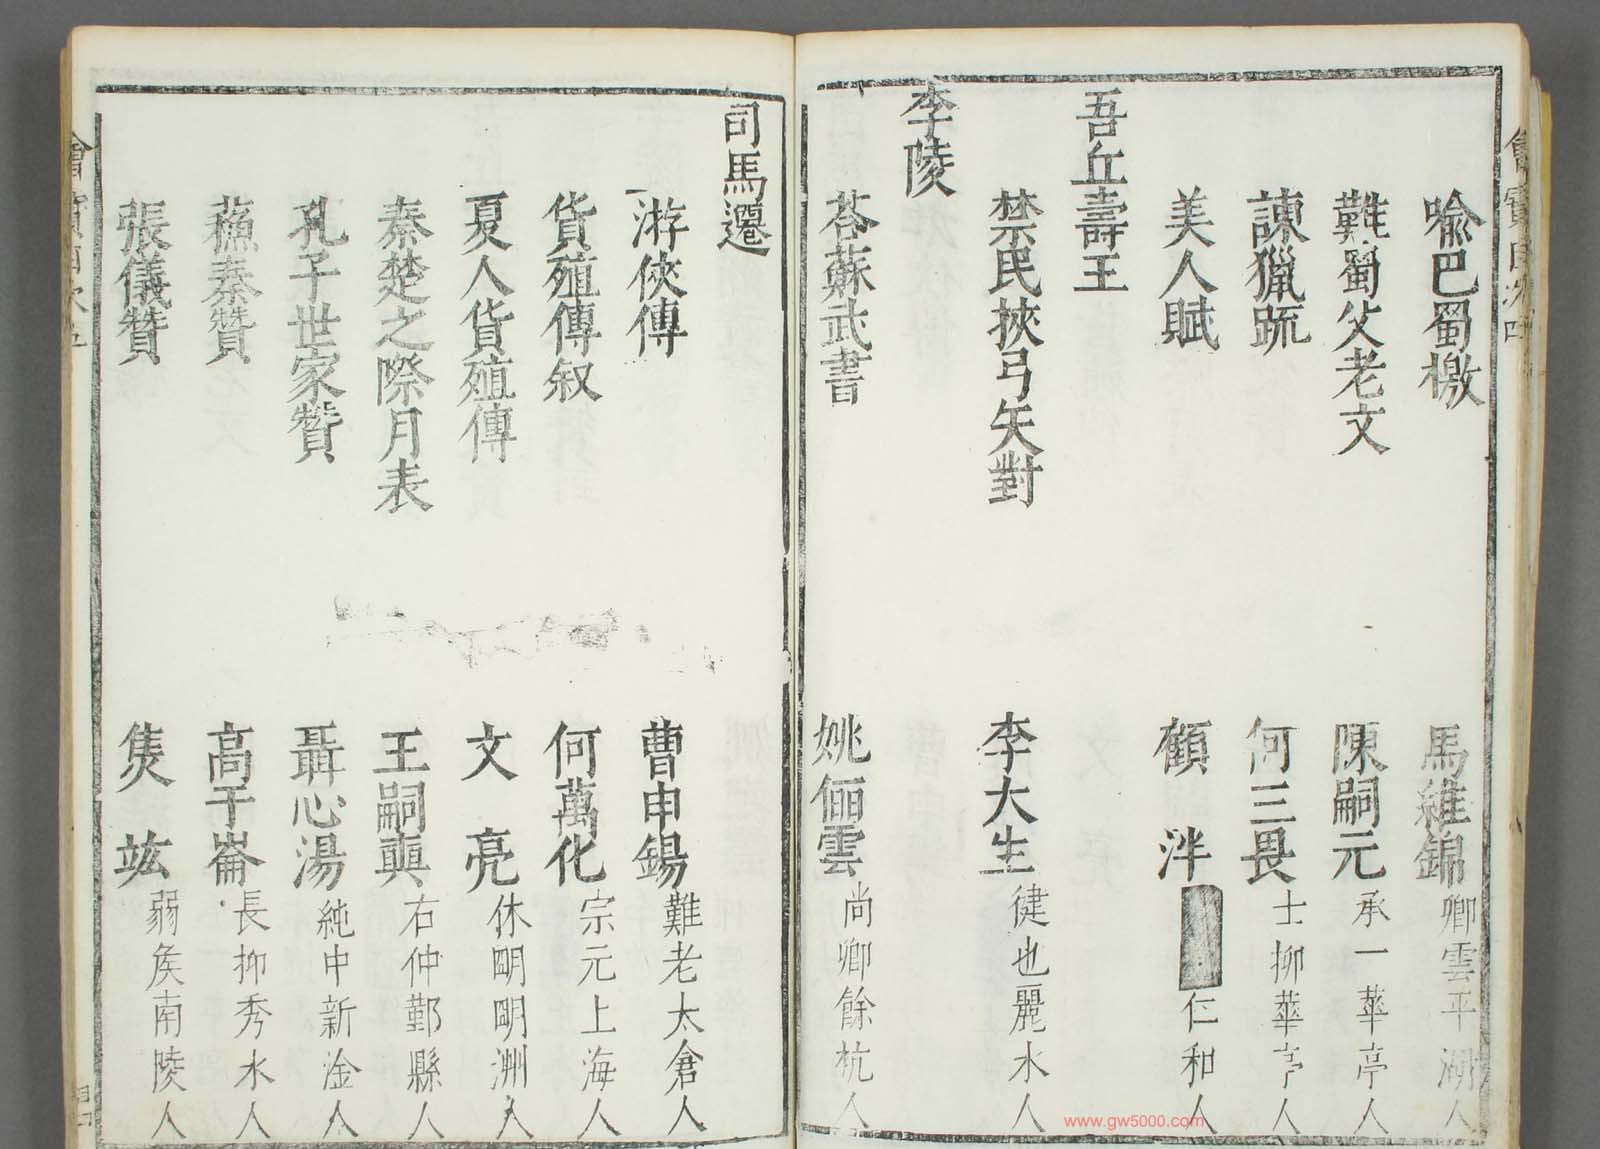 喻巴蜀檄 馬維錦 卿雲平湖人
難蜀父老文 陳嗣元 承一華亭人
諫獵疏 何三畏 士抑華亭人
美人賦 顧泮 仁和人
吾丘壽王
禁民挾弓矢對 李大生 徤也麗水人
李陵
荅蘇武書 姚儷雲 尚卿餘杭人
司馬遷
游俠傳 曹申錫 難老太倉人
貨殖傳叙 何萬化 宗元上海人
夏人貨殖傳 文亮 休明明洲人
秦楚之際月表 王嗣真 右仲鄞縣人
孔子世家贊 聶心湯 純中新淦人
蘇秦贊 高干崙 長抑秀水人
張儀贊 焦竑 弱侯南陵人
www.gw5000.com